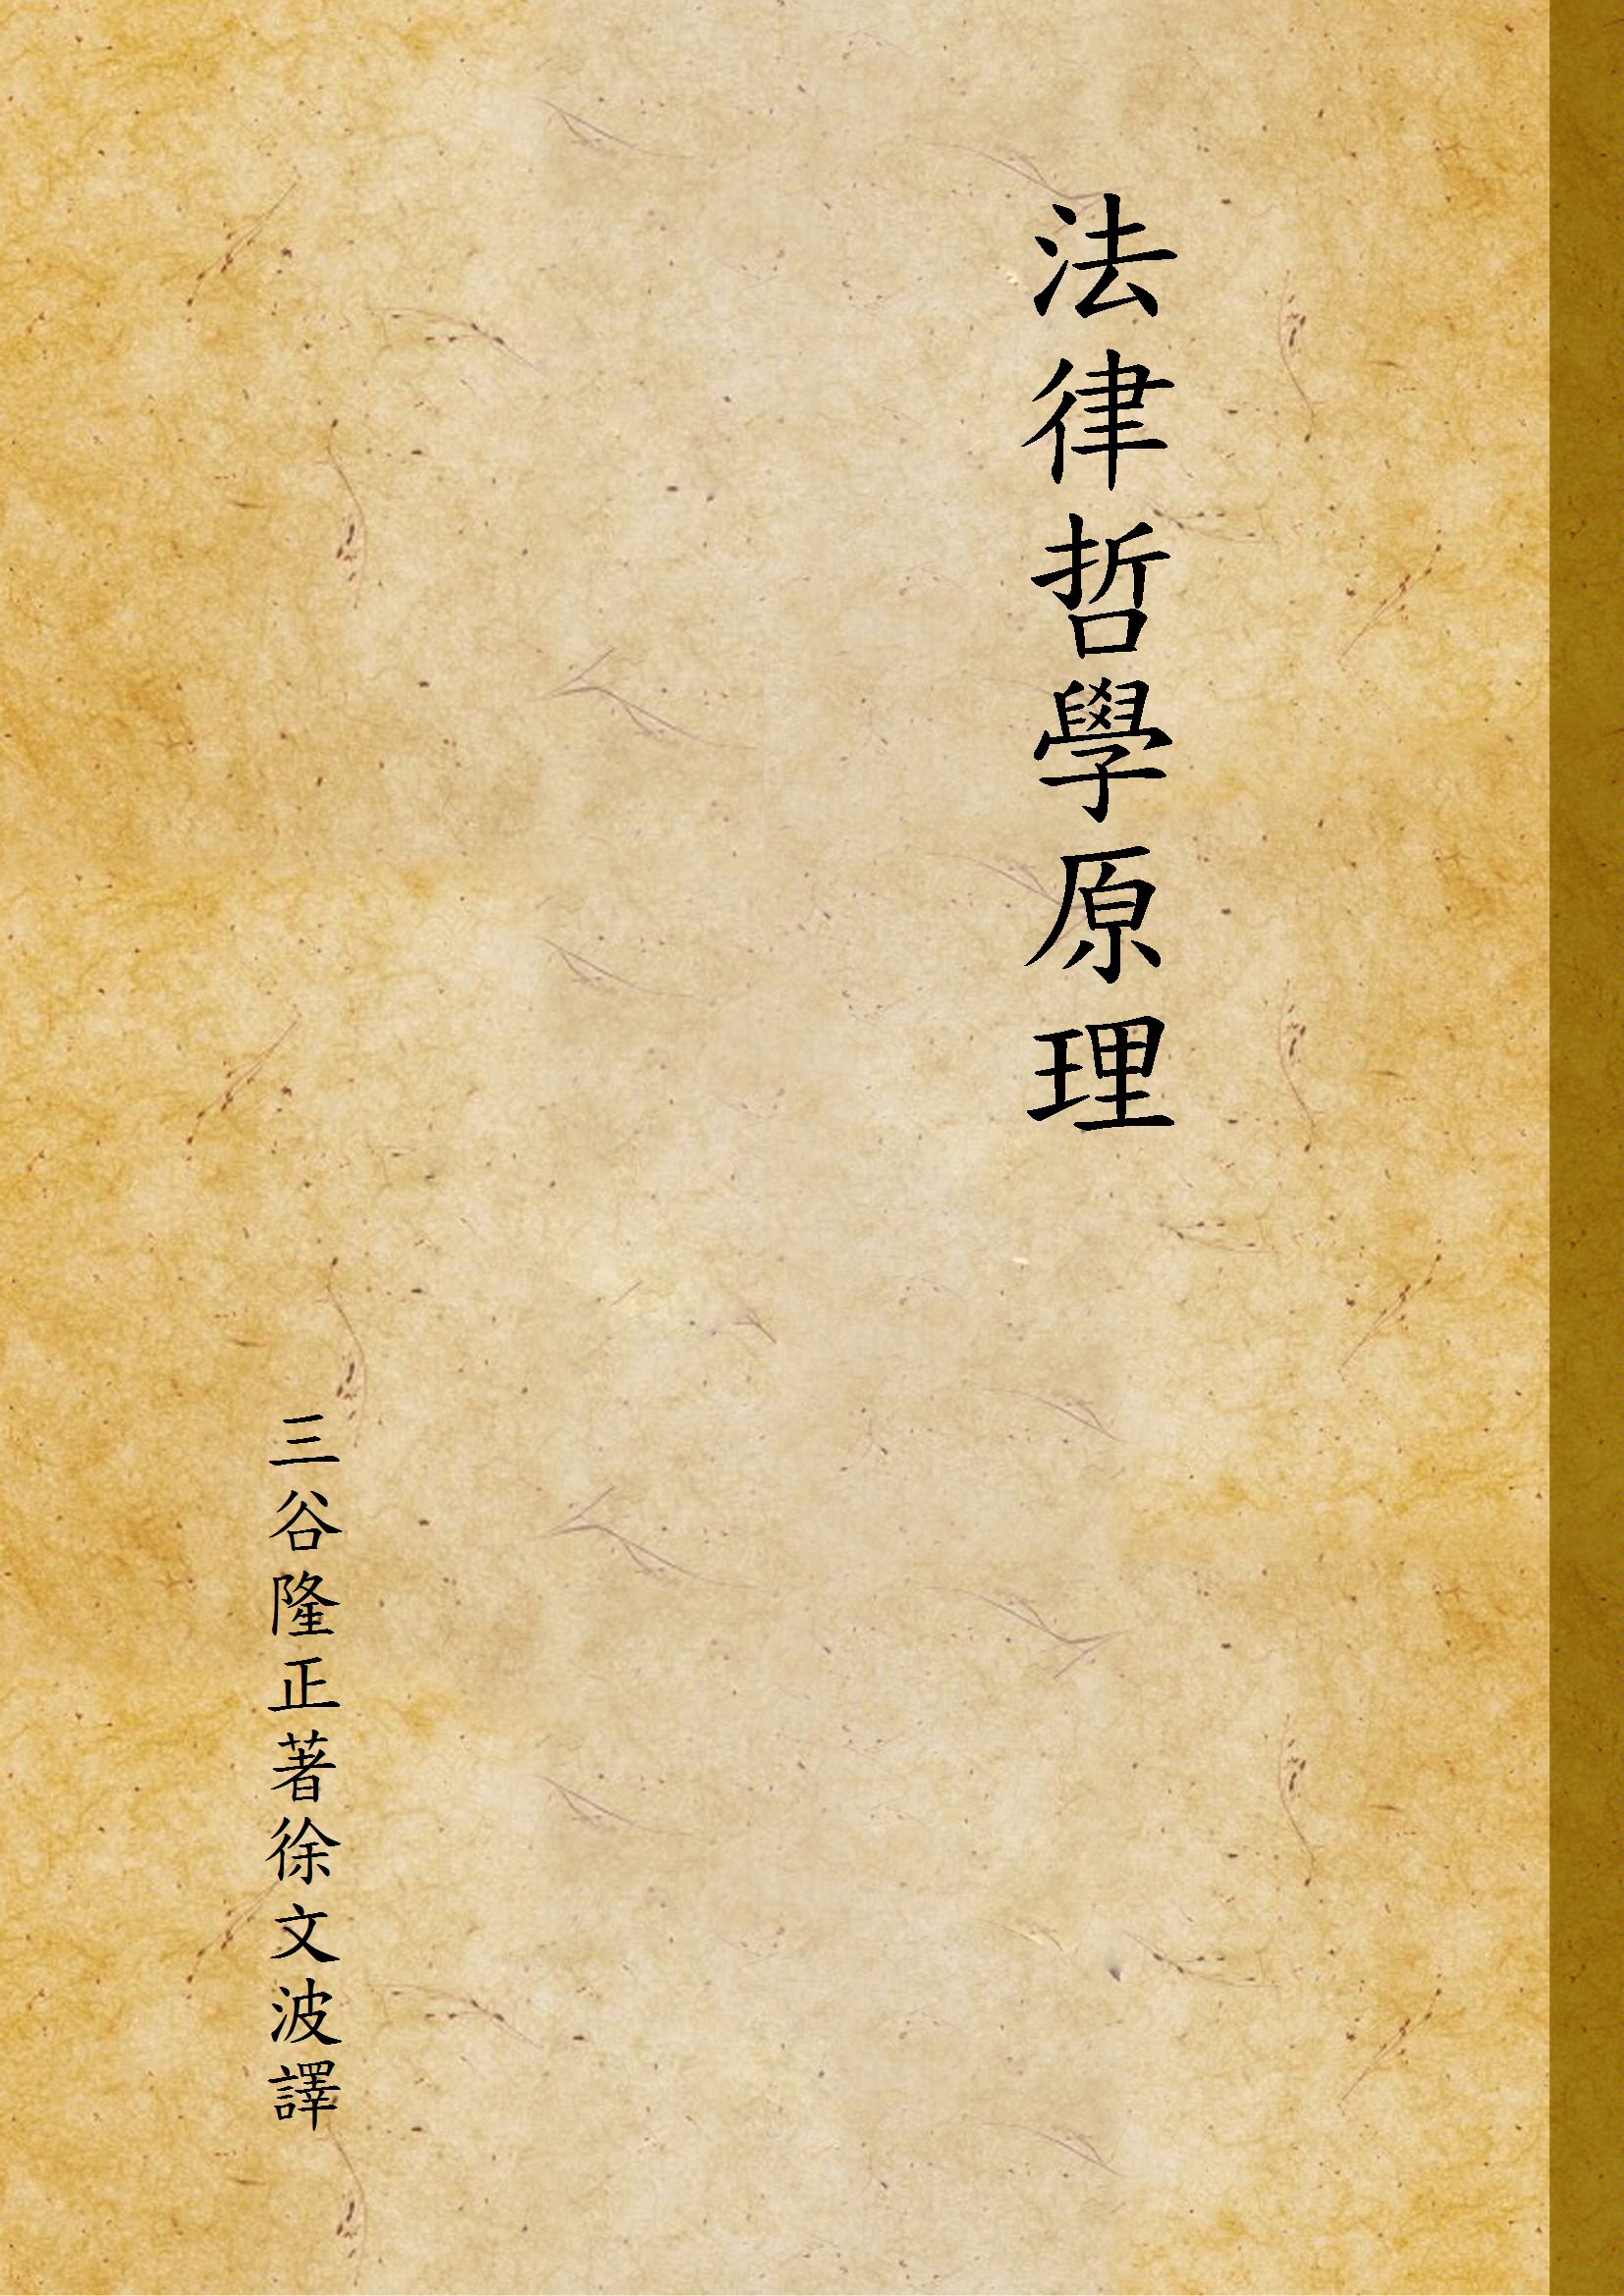 法律哲學原理
三谷隆正著徐文波譯